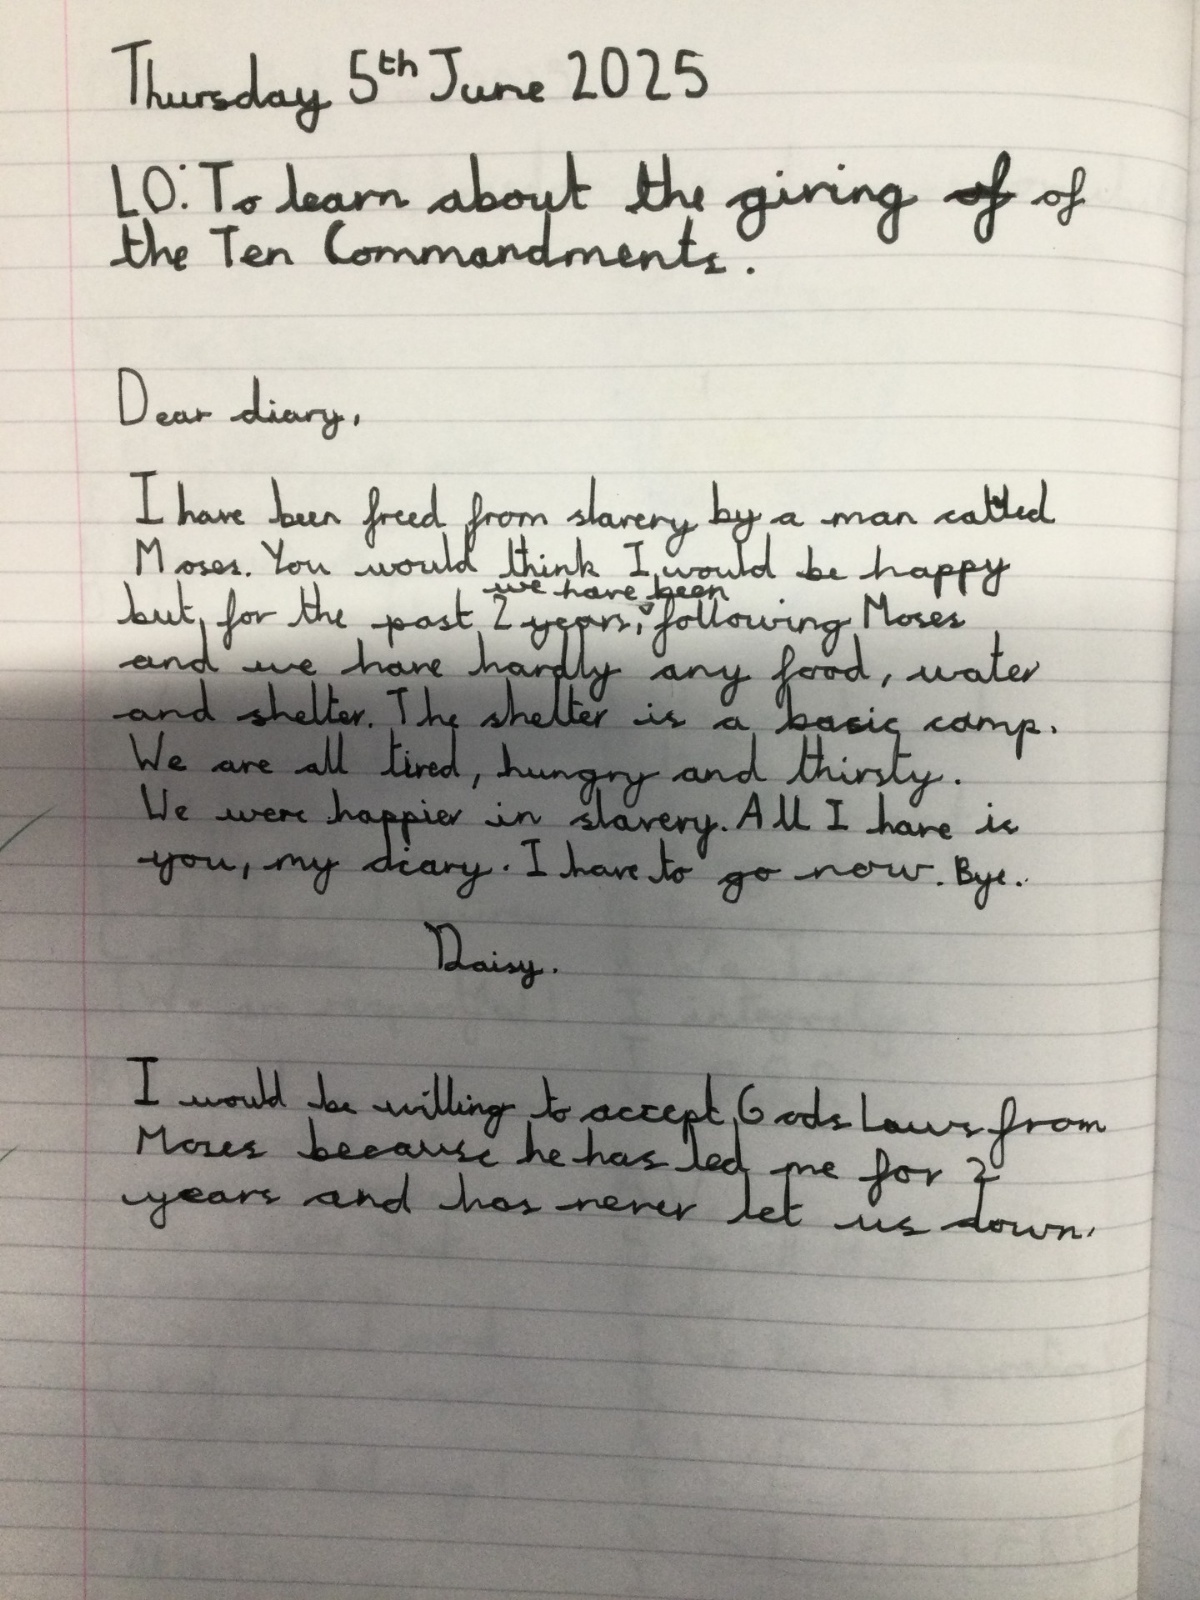 Thursday 5th June 2025
LO: To learn about the giving of of
the Ten Commandments.
Dear diary,
I have been freed from slavery by a man called
Moses. You would think I would be happy
we have been
but, for the past 2 years, following Moses
and we have hardly any food, water
and shelter. The shelter is a basic camp.
We are all tired, hungry and thirsty.
We were happier in slavery. All I have is
you, my diary. I have to go now. Bye.
Daisy.
I would be willing to accept Gods Laws from
Moses because he has led me for 2
years and has never let us down.